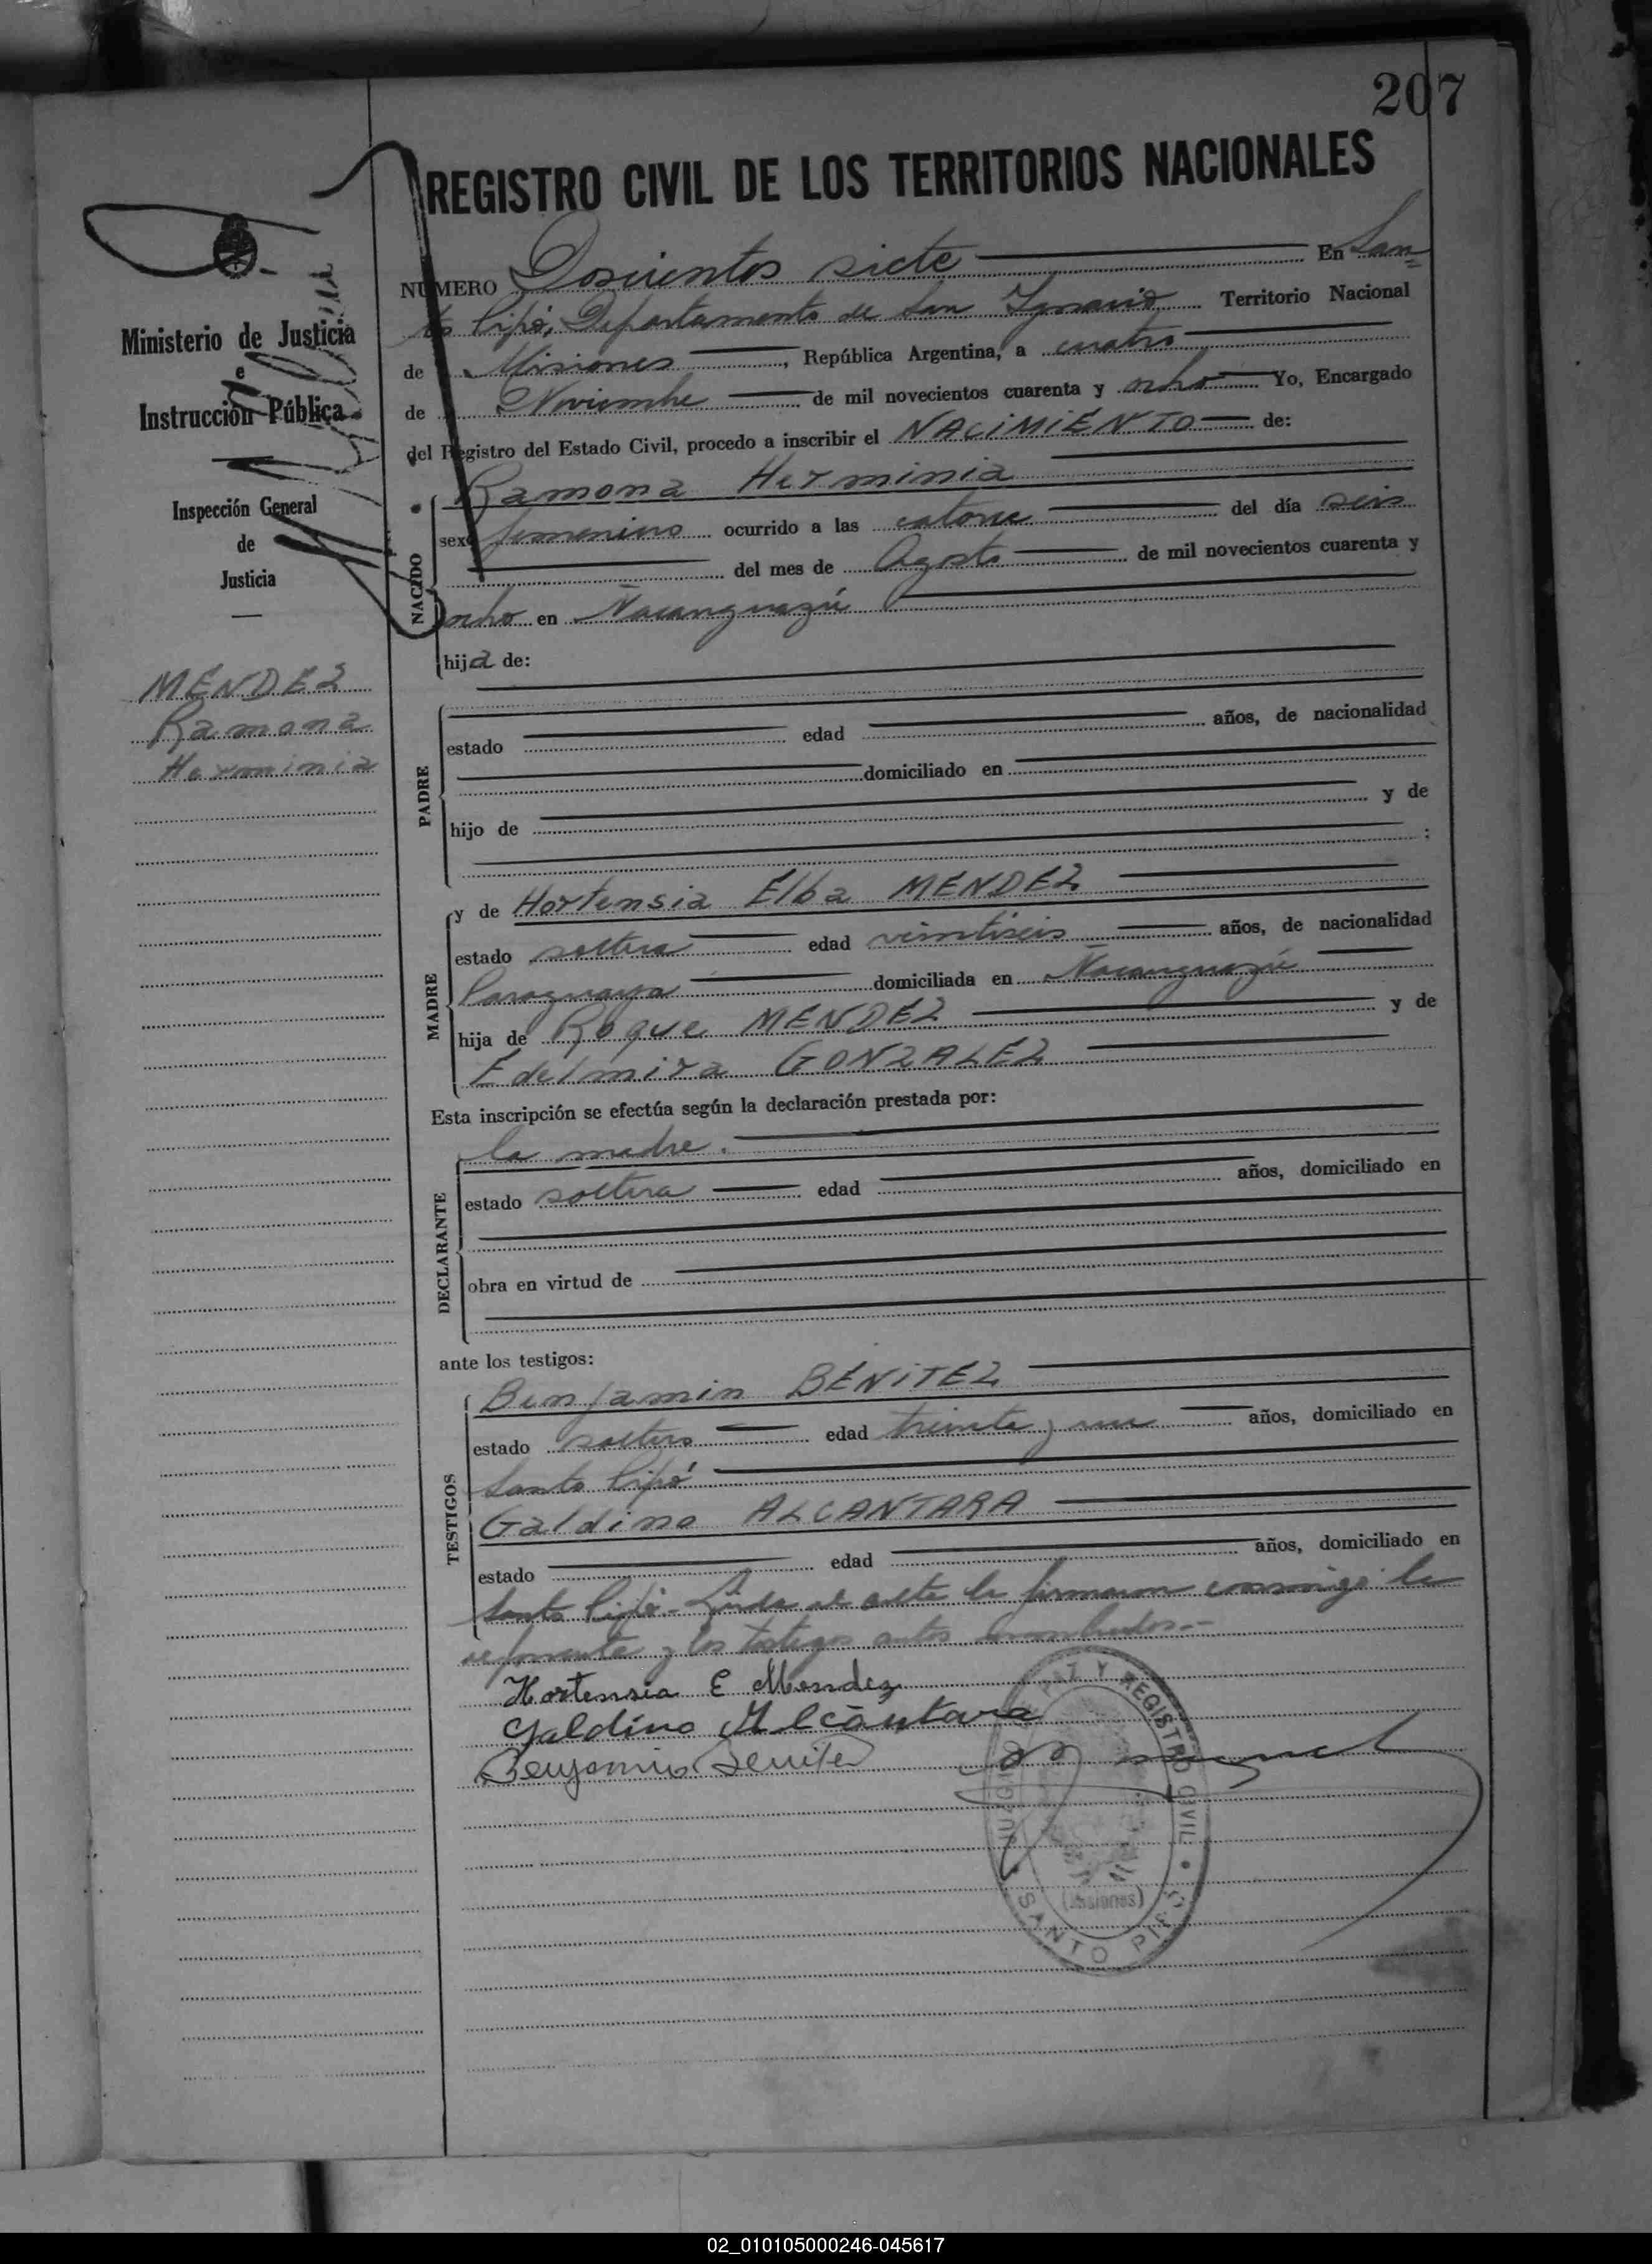 207
REGISTRO CIVIL DE LOS TERRITORIOS NACIONALES
NÚMERO Doscientos siete En San
to Pipó, Departamento de San Ignacio Territorio Nacional
de Misiones, República Argentina, a cuatro
de Noviembre de mil novecientos cuarenta y ocho Yo, Encargado
del Registro del Estado Civil, procedo a inscribir el NACIMIENTO de:
Ramona Herminia
sexo femenino ocurrido a las catorce del día seis
del mes de Agosto de mil novecientos cuarenta y
ocho en Ñacanguazú
hija de:
NACIDO
Ministerio de Justicia
e
Instrucción Pública
Inspección General
de
Justicia
MENDEZ
Ramona
Herminia
PADRE
estado edad años, de nacionalidad
domiciliado en
hijo de y de
:
MADRE
y de Hortensia Elba MENDEZ
estado soltera edad veintiseis años, de nacionalidad
Paraguaya domiciliada en Ñacanguazú
hija de Roque MENDEZ y de
Edelmira GONZALEZ
Esta inscripción se efectúa según la declaración prestada por:
DECLARANTE
la madre.
estado soltera edad años, domiciliado en
obra en virtud de
ante los testigos:
TESTIGOS
Benjamin BENITEZ
estado soltero edad treinta y un años, domiciliado en
Santo Pipó
Galdino ALCANTARA
estado edad años, domiciliado en
Santo Pipó - Leída el acta la firmaron conmigo la
y los testigos antes nombrados.-
Hortensia E Mendez
Galdino Alcantara
Benjamin Benitez
PAZ Y REGISTRO CIVIL
(Misiones)
SANTO PIPÓ
02_010105000246-045617